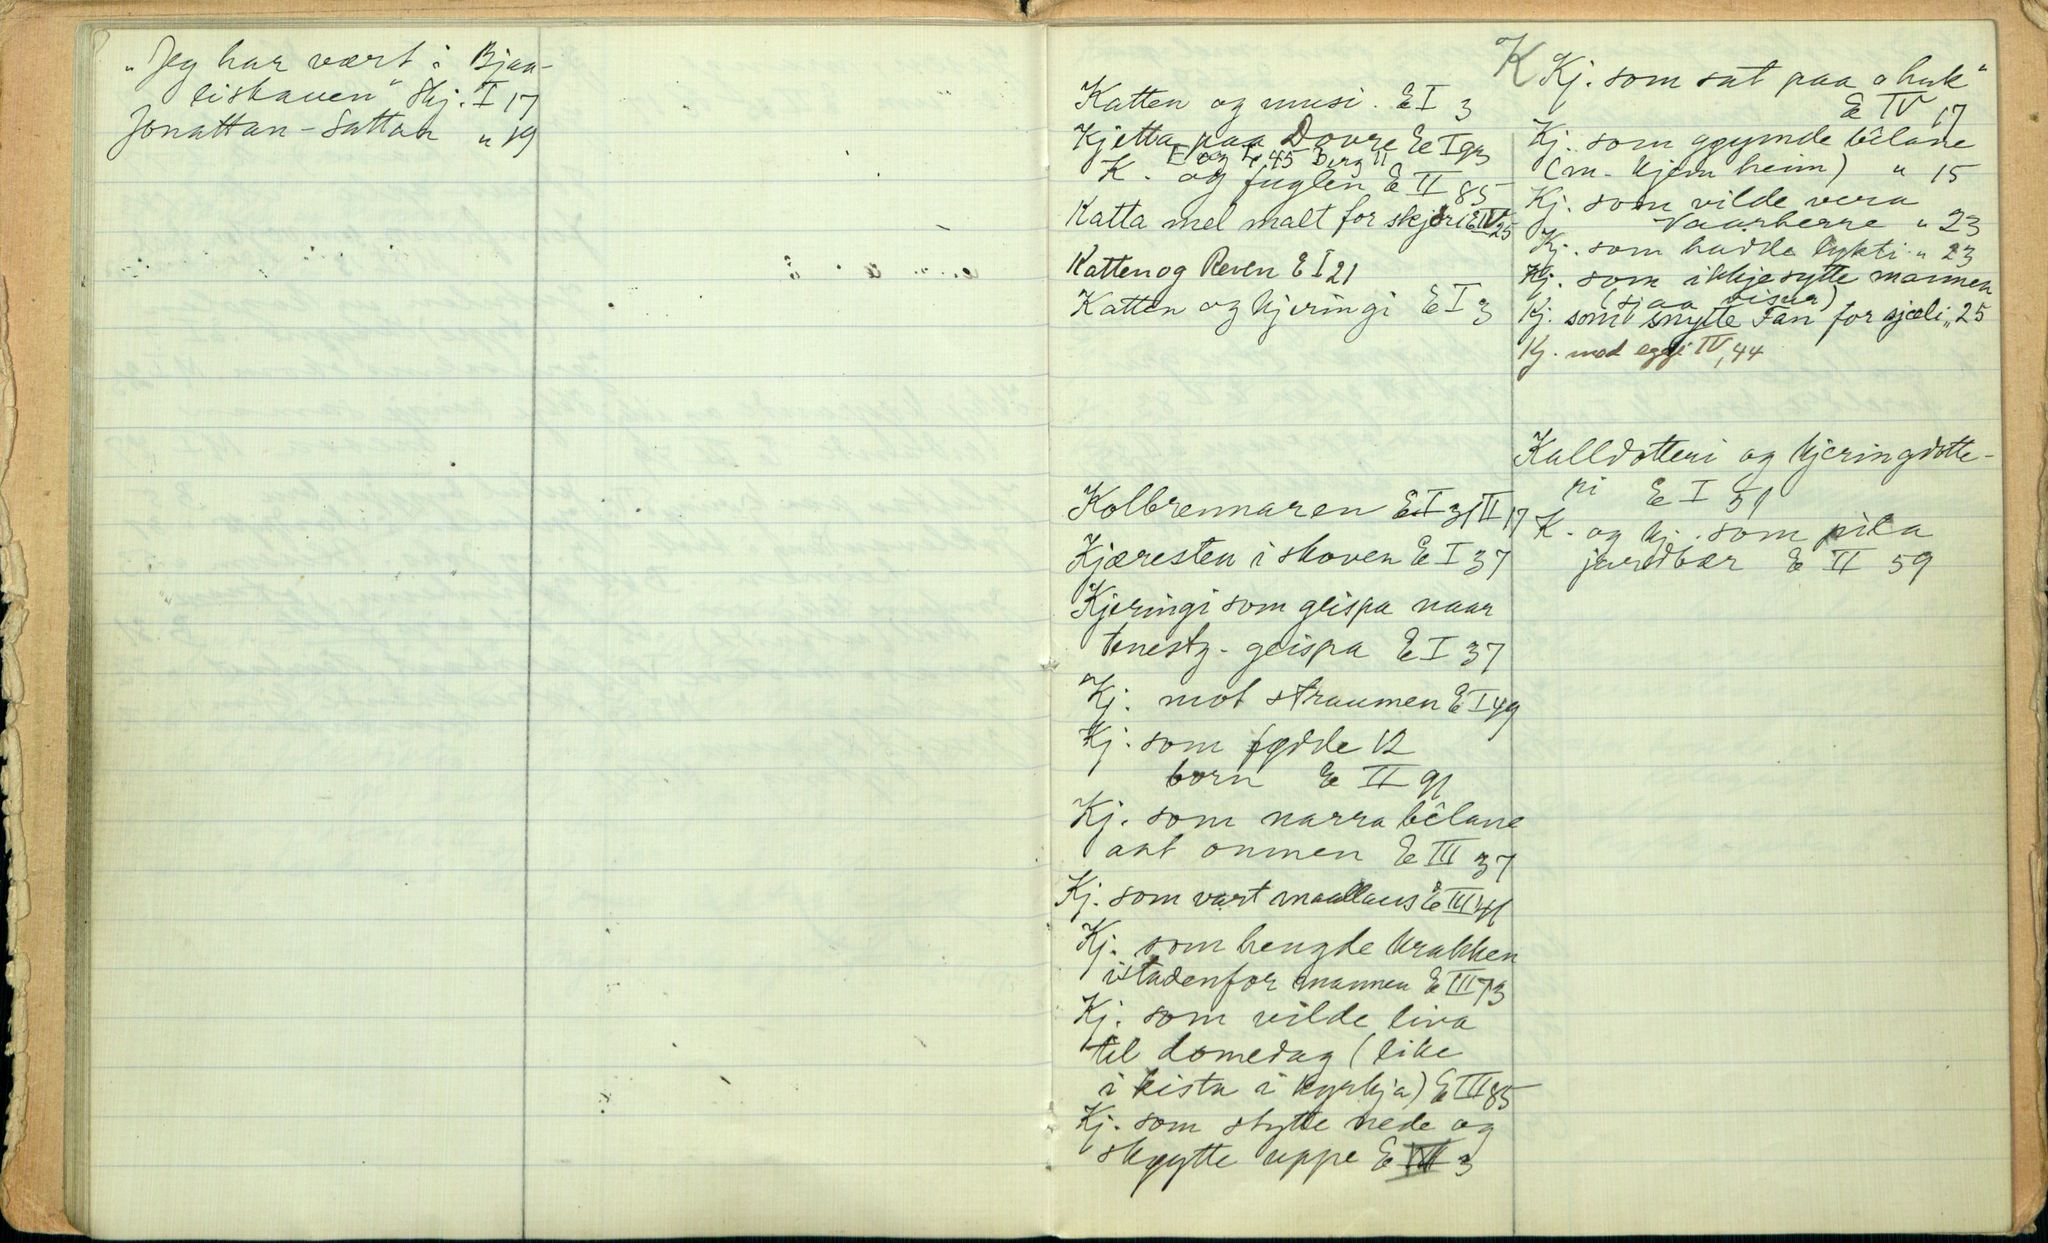 "Jeg har vært i Bjaa-
liskauen" Skj. I 17
Jonattan - Sattan " 19
K
Katten og musi. E I 3
Kjetta paa Dovre E I 93
K. og fuglen E II 85
Katta mel malt for skjør E IV 25
Katten og Reven E I 21
Katten og kjeringi E I 3
Kolbrennaren E I 31 II 17
Kjæresten i skoven E I 37
Kjeringi som geispa naar
tenestg. geispa E I 37
Kj. mot straumen E I 49
Kj. som fødde 12
born E II 91
Kj. som narra bêlane
att onmen E III 37
Kj. som vart maallaus E III 41
Kj. som hengde krakken
istadenfor mannen E III 73
Kj. som vilde liva
til domedag (like
i kista i kyrkja) E III 85
Kj. som stytte nede og
skvytte uppe E 3
Kj. som sat paa "huk"
E IV 17
Kj. som gøymde bêlane
(m. kjem heim) " 15
Kj. som vilde vera
Vaarherre " 23
Kj. som hadde lykti " 23
Kj. som ikkje sytte mannen
(sjaa visur)
Kj. som snytte Fan for sjæli " 25
Kj. med eggi IV, 44
Kalldotteri og kjeringdotte-
ri E I 51
K. og kj. som pila
jardbær E II 59